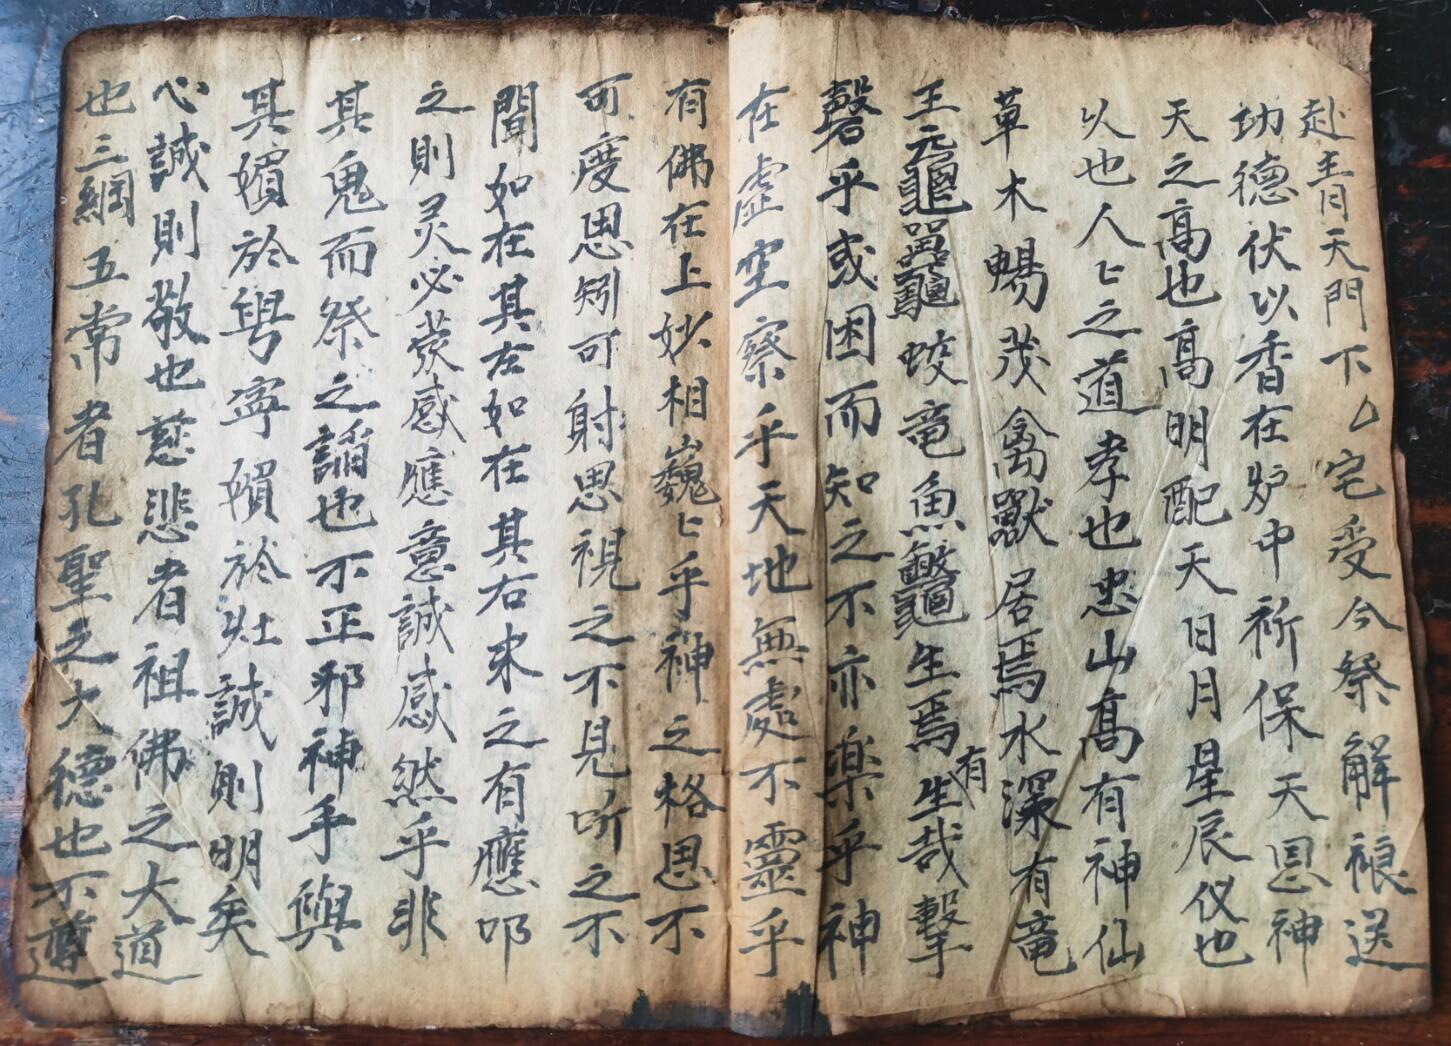 赴青天門下厶宅受今祭解禳送
功德伏以香在炉中祈保天恩神
天之高也高明配天日月星辰仪也
以也人〻之道孝也忠山高有神仙
草木暢茂禽獸居焉水深有竜
王元龜黿鼉蛟竜魚鱉生焉生有哉擊
磬乎或困而知之不亦楽乎神
在虚空察乎天地無處不靈乎
有佛在上妙相巍〻乎神之格思不
可度思矧可射思視之不見听之不
聞如在其左如在其右来之有應叩
之則灵必發感應意誠感然乎非
其鬼而祭之謟也不正邪神乎與
其嬪於粤寕嬪於灶誠則明矣
心誠則敬也慈悲者祖佛之大道
也三綱五常者孔聖之大德也不尊